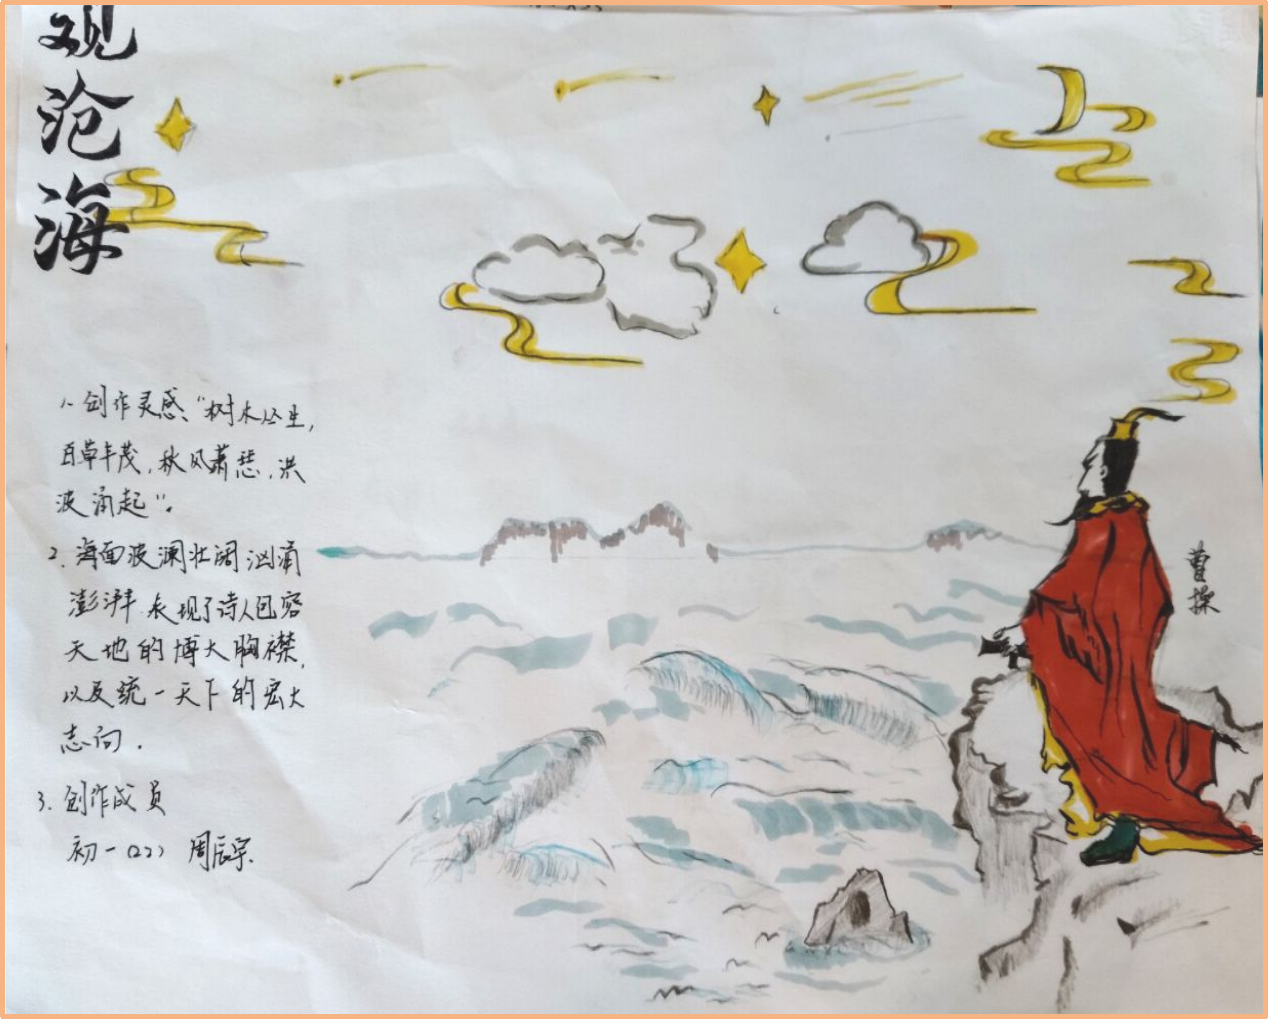 观沧海
1、创作灵感、“树木丛生,
百草丰茂,秋风萧瑟,洪
波涌起”。
2. 海面波澜壮阔汹涌
澎湃 表现了诗人包容
天地的博大胸襟,
以及统一天下的宏大
志向.
3. 创作成员
初一(22) 周辰宇.
曹操